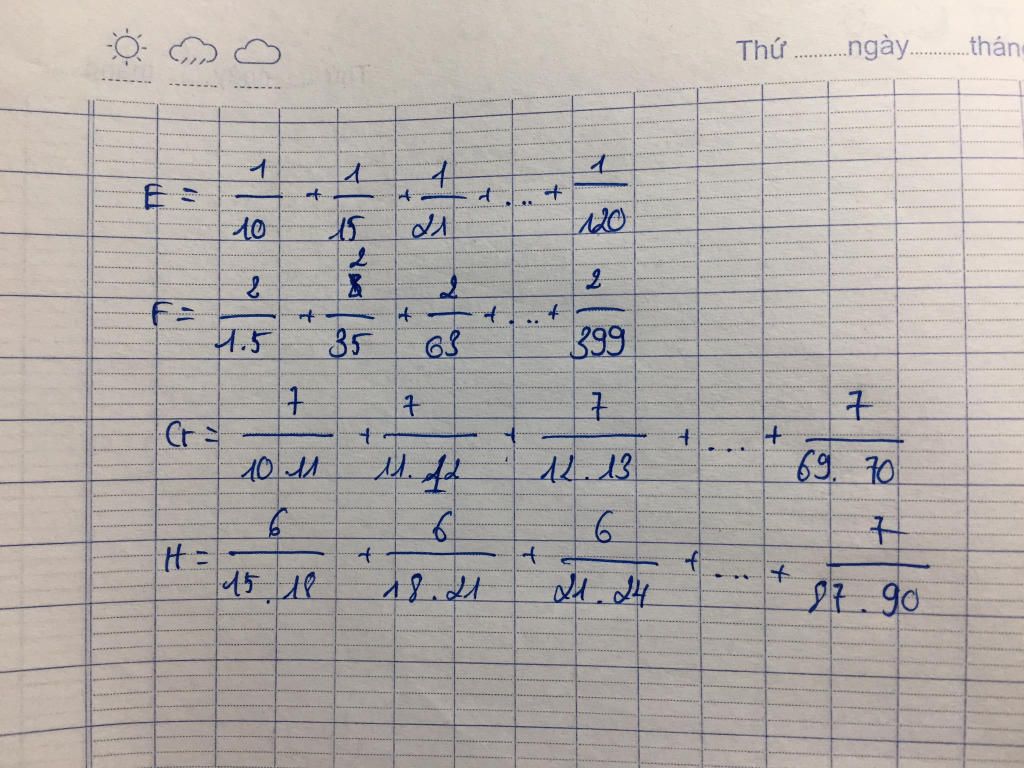 Thứ ..........ngày...........tháng
E = 1/10 + 1/15 + 1/21 + ... + 1/120
F = 2/1.5 + 2/35 + 2/63 + ... + 2/399
G = 7/10.11 + 7/11.12 + 7/12.13 + .... + 7/69.70
H = 6/15.18 + 6/18.21 + 6/21.24 + .... + 7/87.90